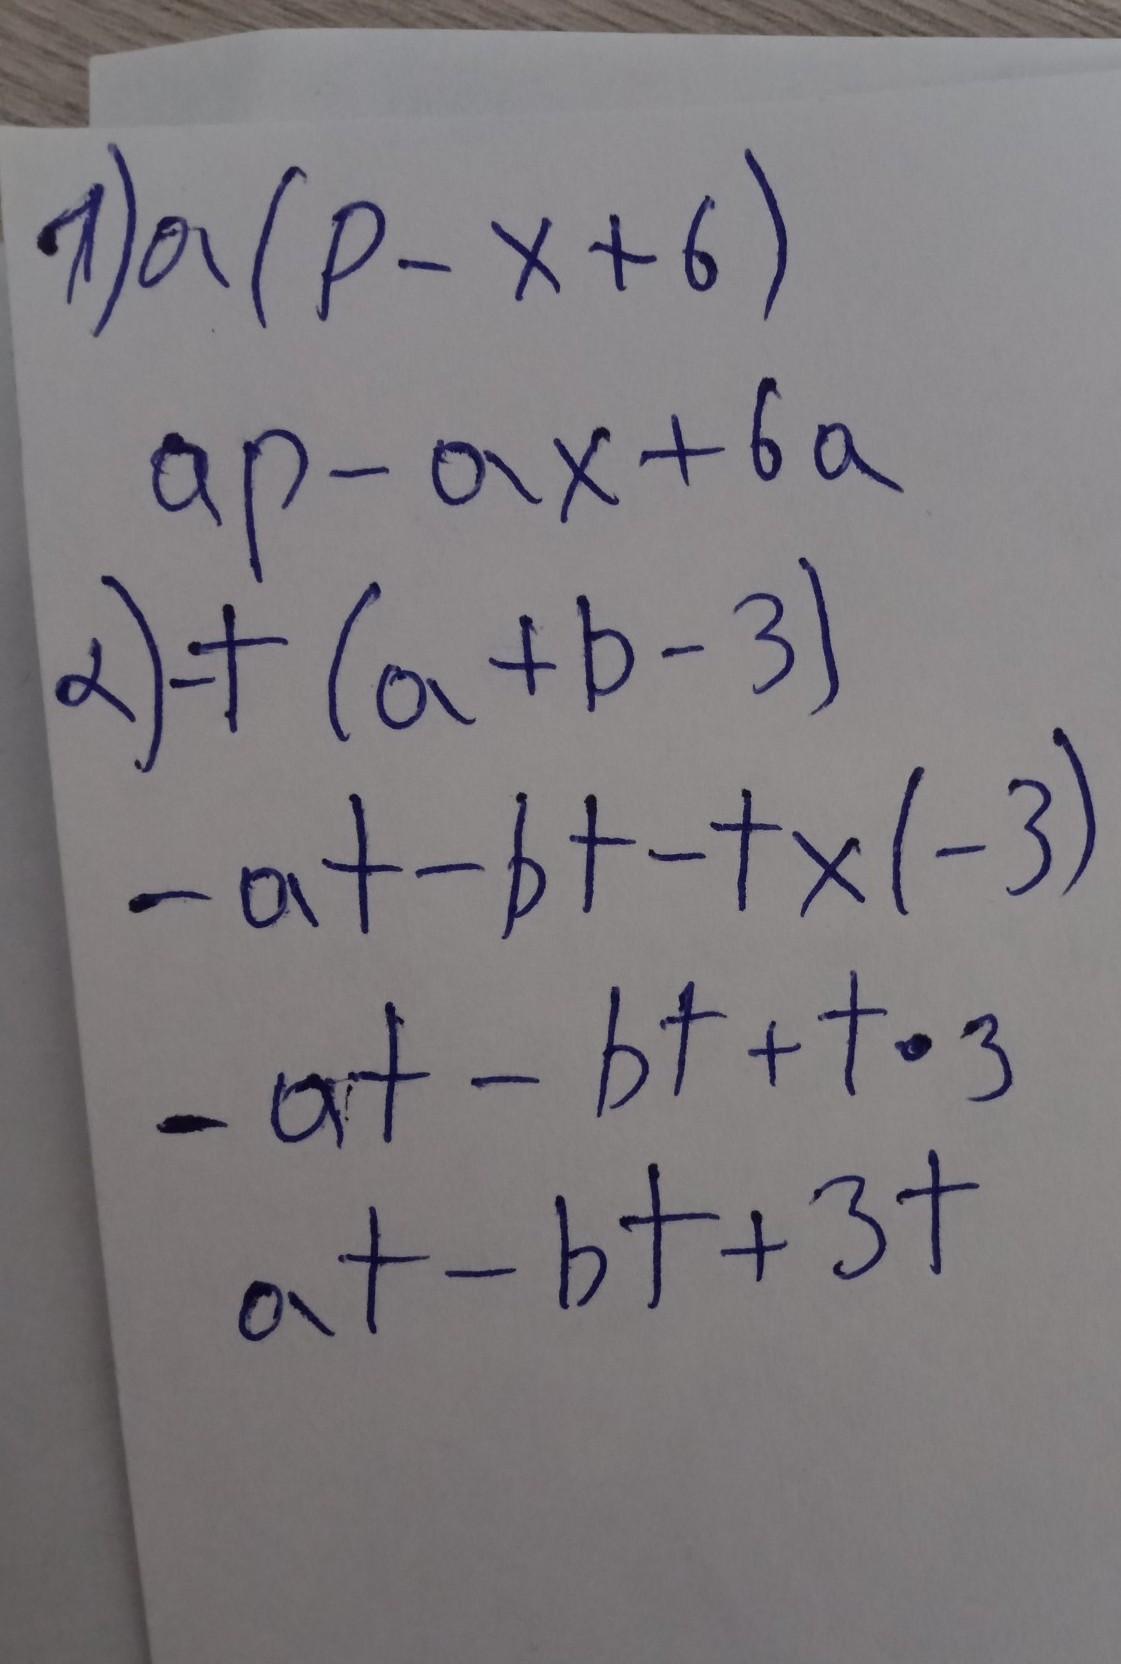 1) a(p-x+6)
ap-ax+6a
2) -t(a+b-3)
-at-bt-tx(-3)
-at-bt+t•3
at-bt+3t